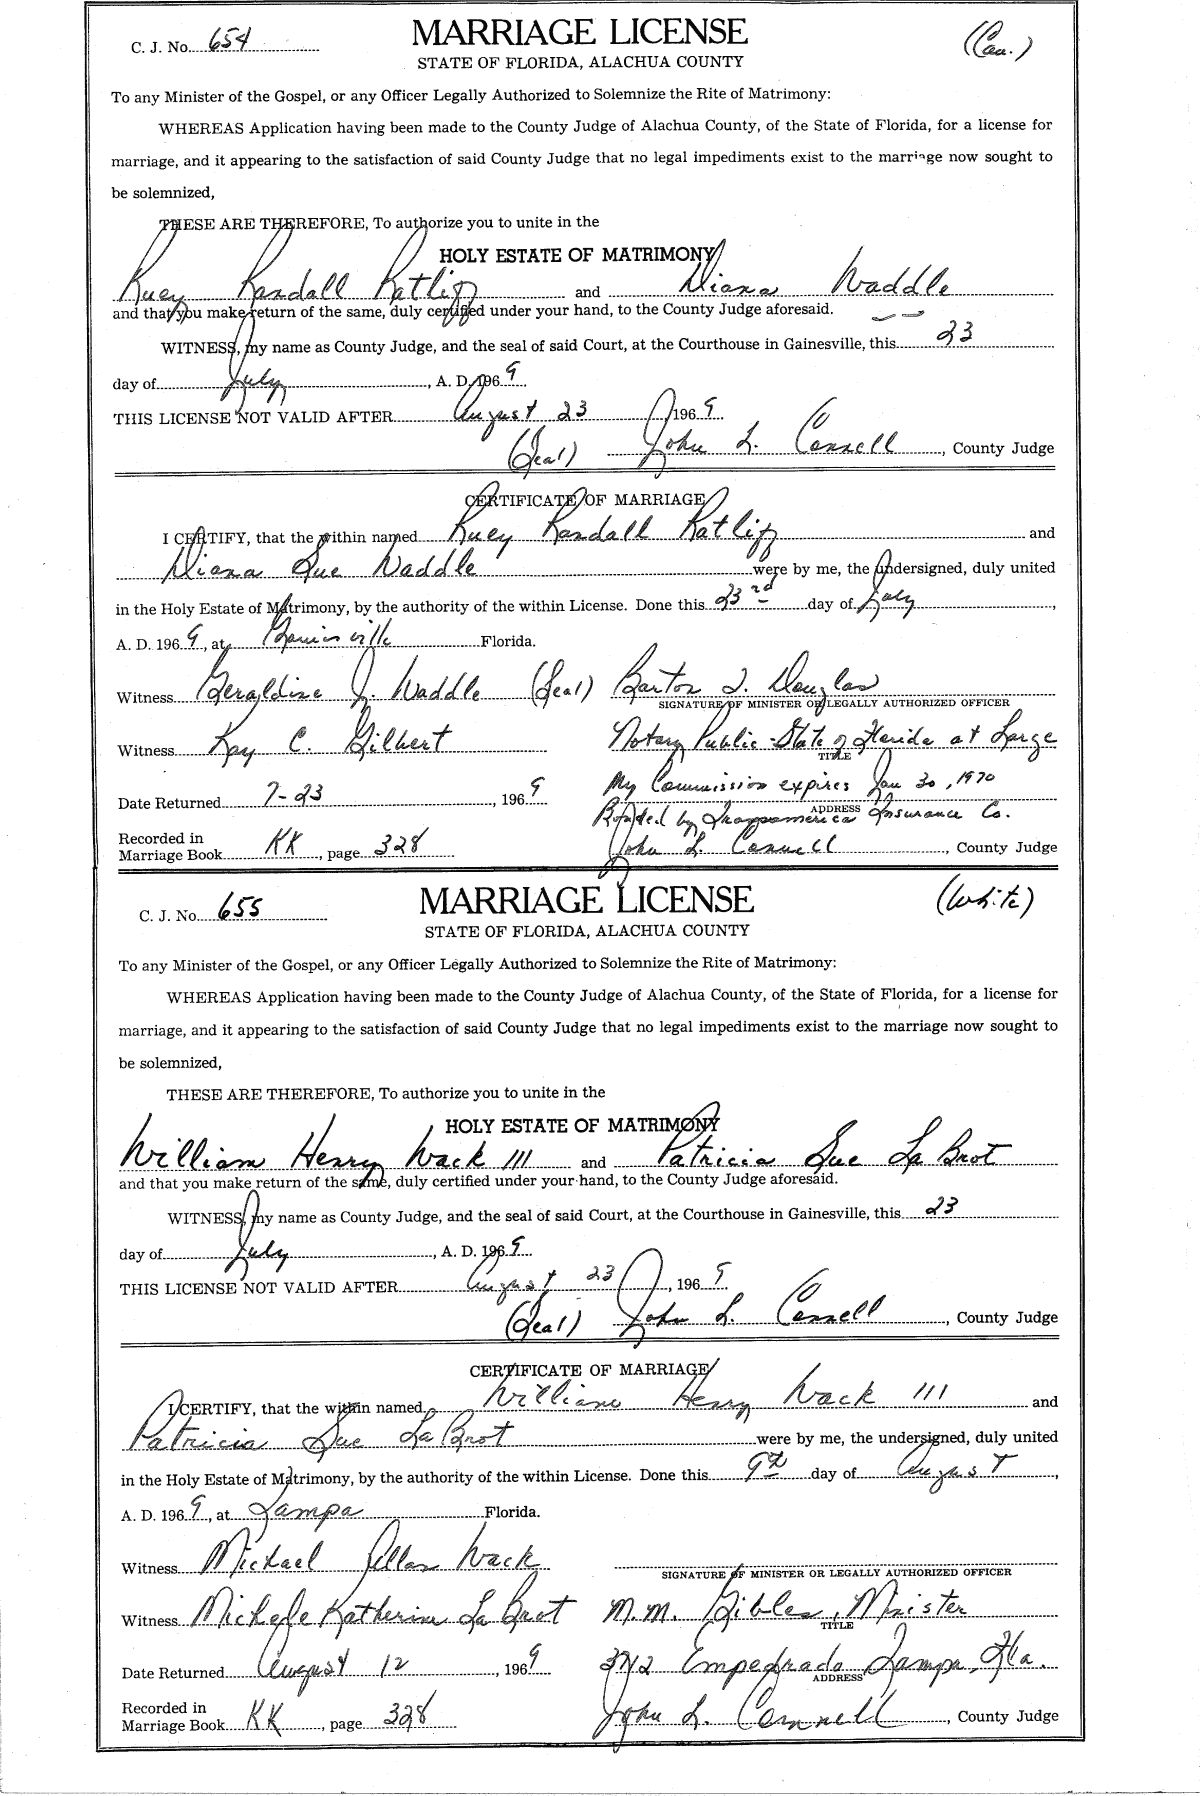 C. J. No. 654 MARRIAGE LICENSE (Cau.)
STATE OF FLORIDA, ALACHUA COUNTY
To any Minister of the Gospel, or any Officer Legally Authorized to Solemnize the Rite of Matrimony:
WHEREAS Application having been made to the County Judge of Alachua County, of the State of Florida, for a license for
marriage, and it appearing to the satisfaction of said County Judge that no legal impediments exist to the marriage now sought to
be solemnized,
THESE ARE THEREFORE, To authorize you to unite in the
HOLY ESTATE OF MATRIMONY
Ruey Randall Ratliff and Diana Waddle
and that you make return of the same, duly certified under your hand, to the County Judge aforesaid.
WITNESS, my name as County Judge, and the seal of said Court, at the Courthouse in Gainesville, this 23
day of July, A. D. 1969
THIS LICENSE NOT VALID AFTER August 23 1969
(Seal) John L. Connell, County Judge
CERTIFICATE OF MARRIAGE
I CERTIFY, that the within named Ruey Randall Ratliff and
Diana Sue Waddle were by me, the undersigned, duly united
in the Holy Estate of Matrimony, by the authority of the within License. Done this 23rd day of July,
A. D. 1969, at Gainesville Florida.
Witness Geraldine J. Waddle (Seal) Barton T. Douglas
SIGNATURE OF MINISTER OR LEGALLY AUTHORIZED OFFICER
Witness Kay C. Gilbert Notary Public-State of Florida at Large
TITLE
My Commission expires Jan 30, 1970
Date Returned 7-23, 1969
ADDRESS
Bonded by Transamerica Insurance Co.
Recorded in
Marriage Book KK, page 328 John L. Connell, County Judge
C. J. No. 655 MARRIAGE LICENSE (White)
STATE OF FLORIDA, ALACHUA COUNTY
To any Minister of the Gospel, or any Officer Legally Authorized to Solemnize the Rite of Matrimony:
WHEREAS Application having been made to the County Judge of Alachua County, of the State of Florida, for a license for
marriage, and it appearing to the satisfaction of said County Judge that no legal impediments exist to the marriage now sought to
be solemnized,
THESE ARE THEREFORE, To authorize you to unite in the
HOLY ESTATE OF MATRIMONY
William Henry Wack III and Patricia Sue LaBrot
and that you make return of the same, duly certified under your hand, to the County Judge aforesaid.
WITNESS, my name as County Judge, and the seal of said Court, at the Courthouse in Gainesville, this 23
day of July, A. D. 1969
THIS LICENSE NOT VALID AFTER August 23, 1969
(Seal) John L. Connell, County Judge
CERTIFICATE OF MARRIAGE
I CERTIFY, that the within named William Henry Wack III and
Patricia Sue LaBrot were by me, the undersigned, duly united
in the Holy Estate of Matrimony, by the authority of the within License. Done this 9th day of August,
A. D. 1969, at Tampa Florida.
Witness Michael Wack
SIGNATURE OF MINISTER OR LEGALLY AUTHORIZED OFFICER
Witness Michele Katherine LaBrot M.M. Minister
TITLE
Date Returned August 12, 1969 3712 Empedrado Tampa, Fla.
ADDRESS
Recorded in
Marriage Book KK, page 328 John L. Connell, County Judge